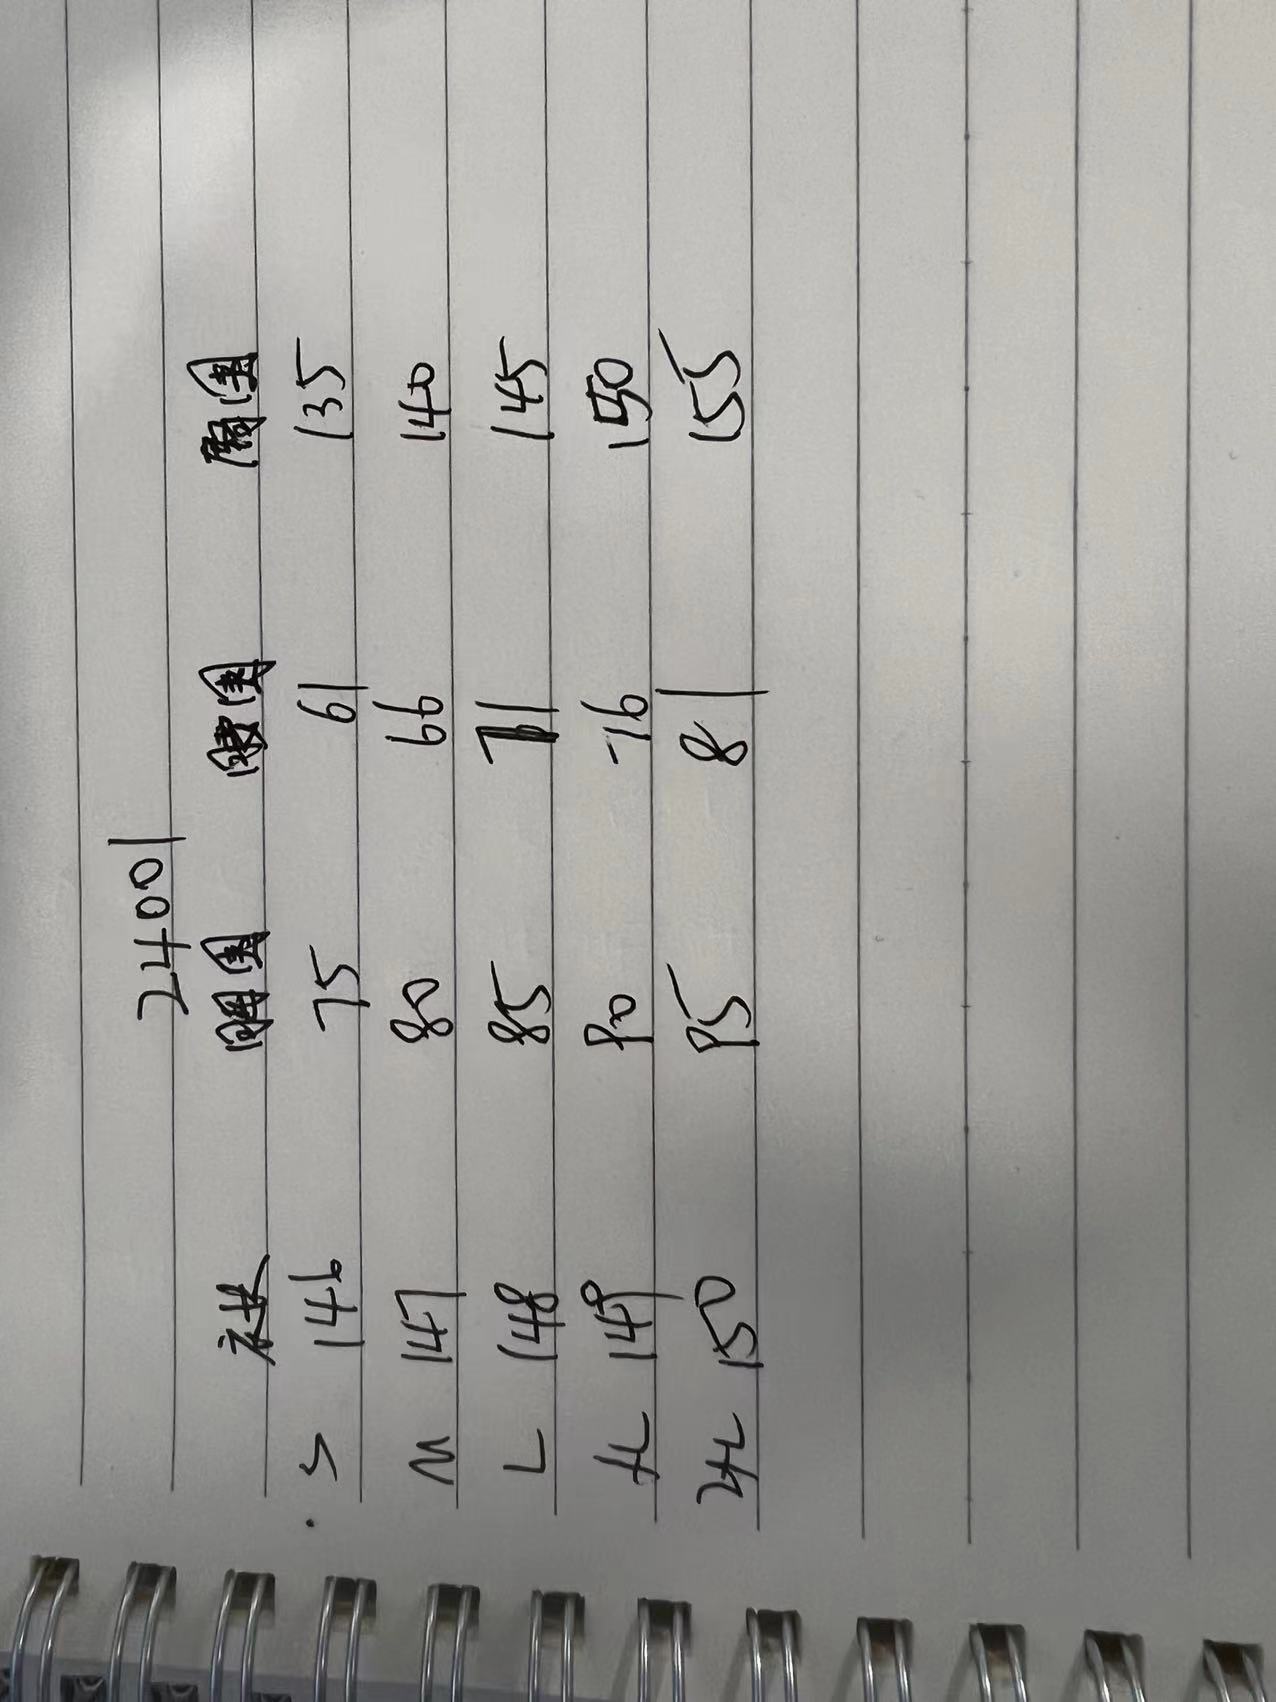 24001
衣长 胸围 腰围 臀围
S 146 75 61 135
M 147 80 66 140
L 148 85 71 145
XL 149 90 76 150
2XL 150 95 81 155